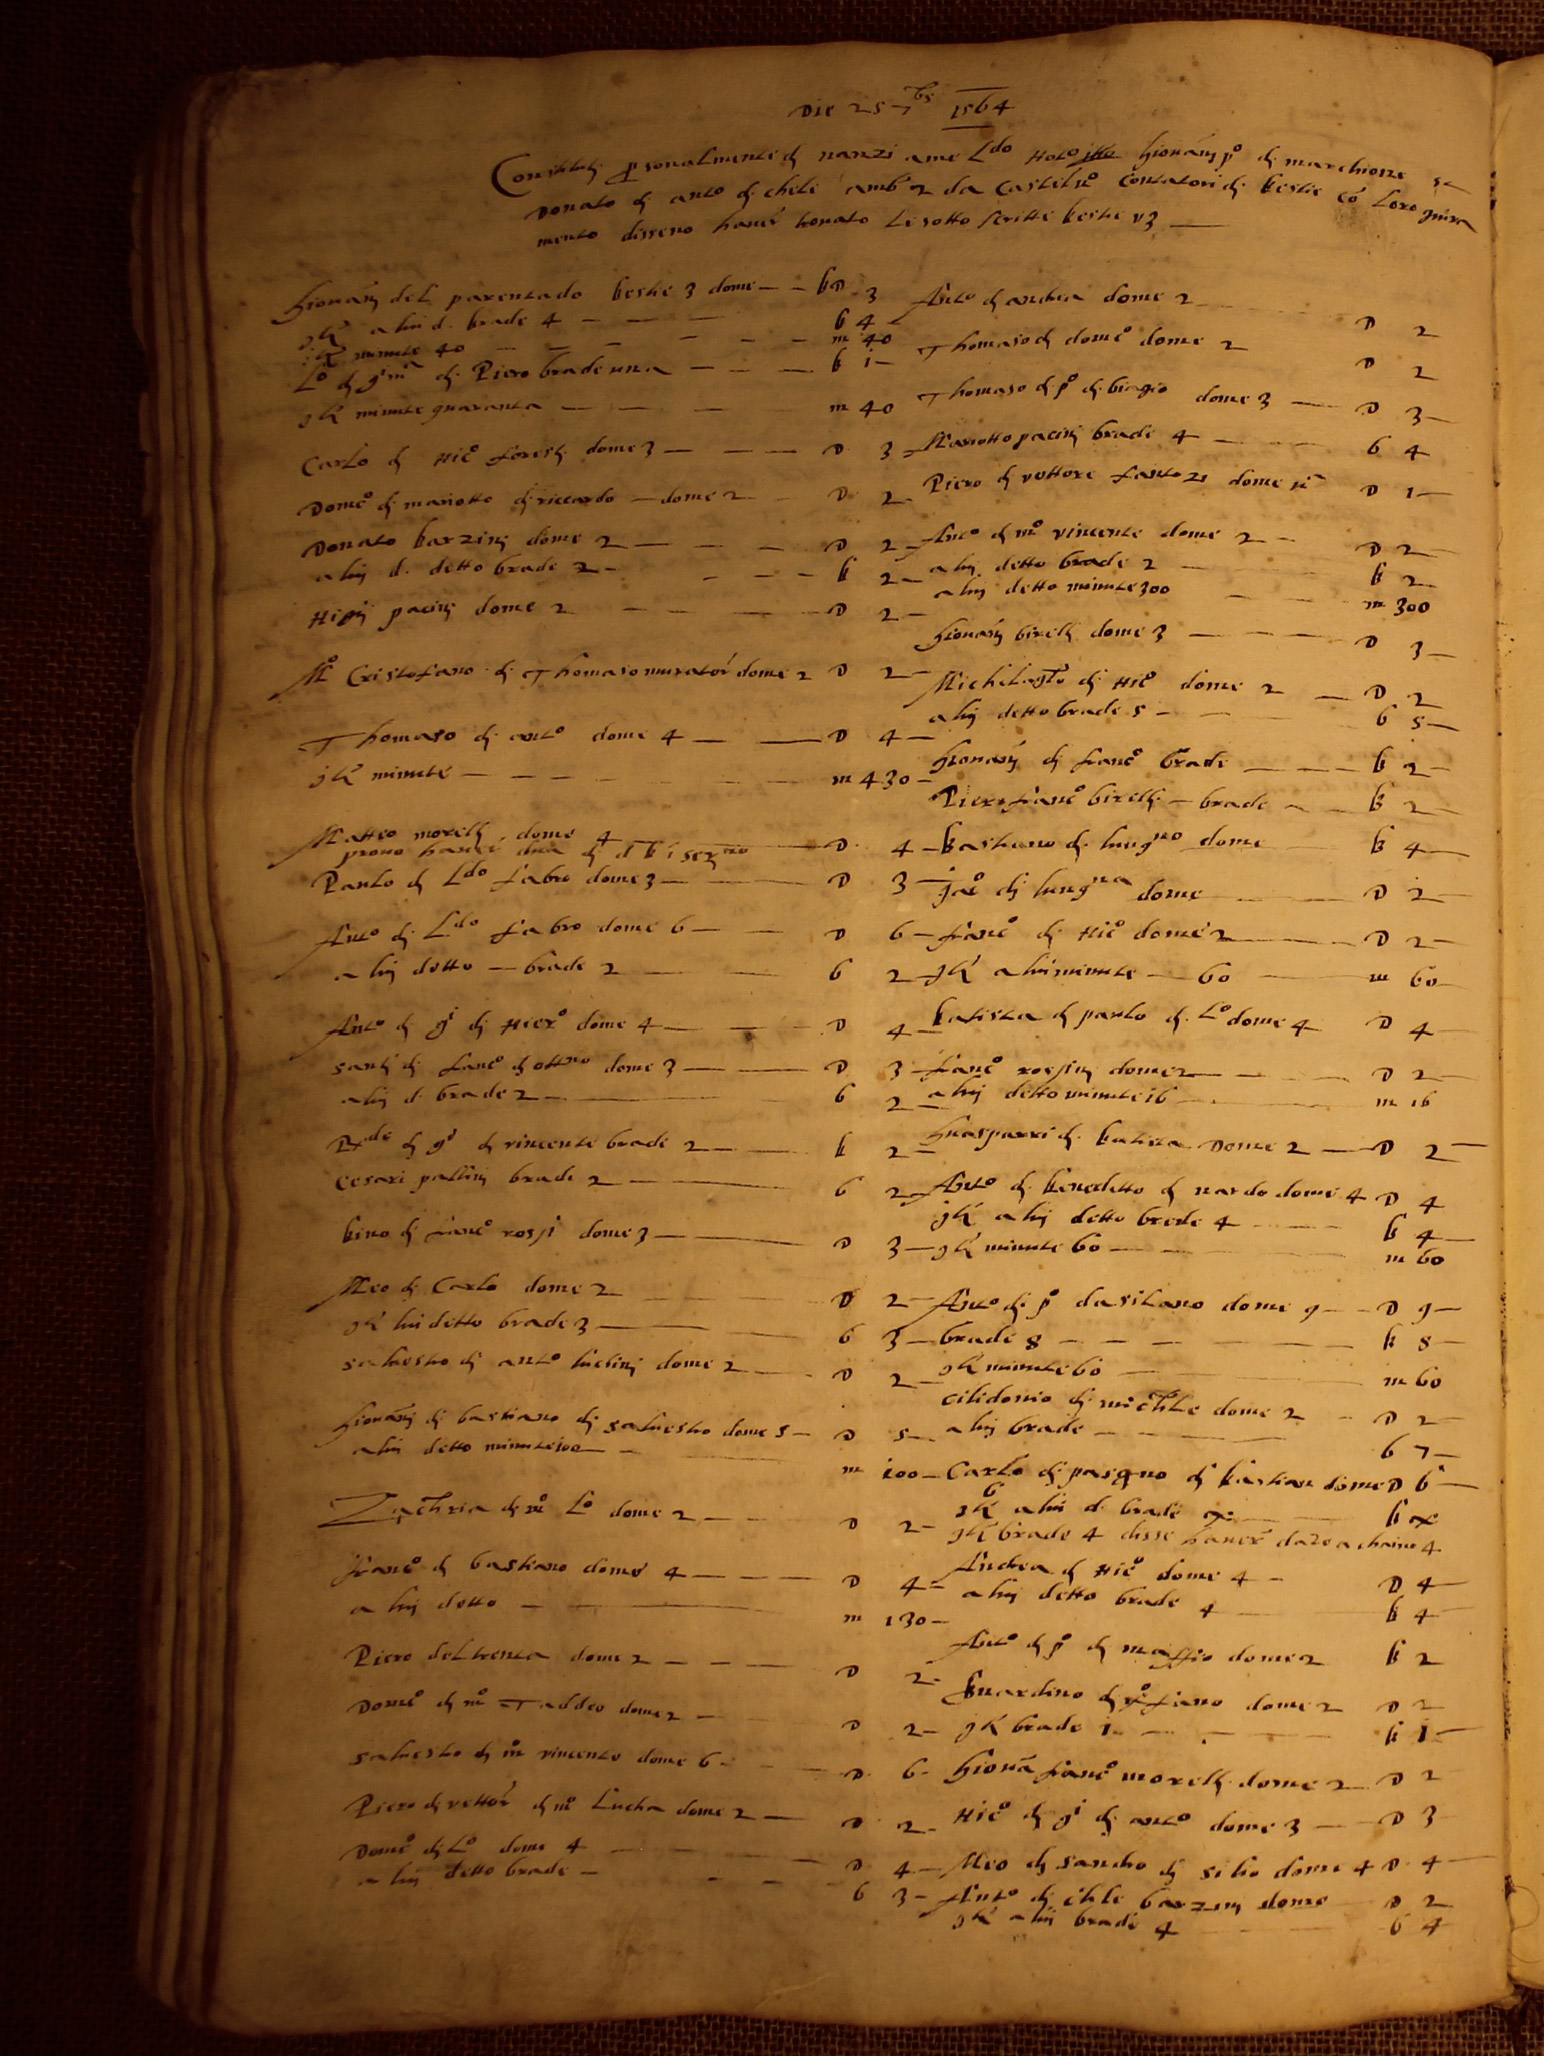 Die 25 7bs 1564
Constituti personalmente di nanzi a me Ldo noto Giovãni po di marchione et
Donato di anto di chele amb 2 da Casteluo contatori di bestie cõ loro giura
mento dissero haver trovato le sotto scritte bestie vz
Giovãni del parentado bestie 3 dome — b D 3
a lui d. brade 4 — b 4
minute 40 — m 40
Lo di di Piero brade una — b i
minute quaranta — m 40
Carlo di Hico foresi dome 3 — D 3
Domco di mariotto di riccardo — dome 2 — D 2
Donato barzini dome 2 — D 2
a lui d. detto brade 2 — b 2
pacini dome 2 — D 2
Mo Cristofano di Thomaso murator dome 2 D 2
Thomaso di anto dome 4 — D 4
minute — m 430
Matteo morelli dome 4 — D 4
Paulo di Ldo fabro dome 3 — D 3
Anto di Ldo fabro dome 6 — D 6
a lui detto — brade 2 — b 2
Anto di gi di Hiero dome 4 — D 4
santi di franco di dome 3 — D 3
a lui d. brade 2 — b 2
di gi di vincenti brade 2 — b 2
Cesari pallini brade 2 — b 2
bino di franco rossi dome 3 — D 3
Meo di Carlo dome 2 — D 2
lui detto brade 3 — b 3
salvestro di anto lucchini dome 2 — D 2
Giovãni di bastiano di salvestro dome 5 — D 5
a lui detto minute 100 — m 100
Zachria di mo Lo dome 2 — D 2
franco di bastiano dome 4 — D 4
a lui detto — m 130
Piero del trenta dome 2 — D 2
Domco di mo Taddeo dome 2 — D 2
salvestro di mo vincento dome 6 — D 6
Piero di vettor di mo Lucha dome 2 — D 2
Domco di Lo dome 4 — D 4
a lui detto brade — b 3
Anto di andrea dome 2 D 2
Thomaso di domco dome 2 D 2
Thomaso di po di biagio dome 3 — D 3
Mariotto pacini brade 4 — b 4
Piero di vettore fantozi dome D 1
Anto di mo vincente dome 2 — D 2
a lui detto brade 2 — b 2
a lui detto minute 300 — m 300
Giovãni birelli dome 3 — D 3
Michelagto di Hico dome 2 — D 2
a lui detto brade 5 — b 5
Giovãni di franco brade — b 2
Piero franco birelli — brade — b 2
bastiano di dome b 4
di dome D 2
franco di Hico dome 2 — D 2
a lui minute — 60 — m 60
batista di paulo di Lo dome 4 D 4
franco rossini dome 2 — D 2
a lui detto minute 16 — m 16
Guasparri di batista Dome 2 — D 2
Anto di benedetto di nardo dome 4 D 4
a lui detto brade 4 — b 4
minute 60 — m 60
Anto di po da silano dome 9 — D 9
brade 8 — b 8
minute 60 — m 60
Cilidonio di michle dome 2 — D 2
a lui brade — b 7
Carlo di pasqno di bastian dome D 6
6
a lui d. brade b
brade 4 disse haver date a chaino 4
Andrea di Hico dome 4 — D 4
a lui detto brade 4 b 4
Anto di po di maffio dome 2 b 2
dome 2 D 2
brade 1 — b 1
Giovã franco morelli dome 2 D 2
Hico di gi di anto dome 3 — D 3
Meo di sancho di silio dome 4 D 4
Anto di chele barzini dome D 2
a lui brade 4 — b 4